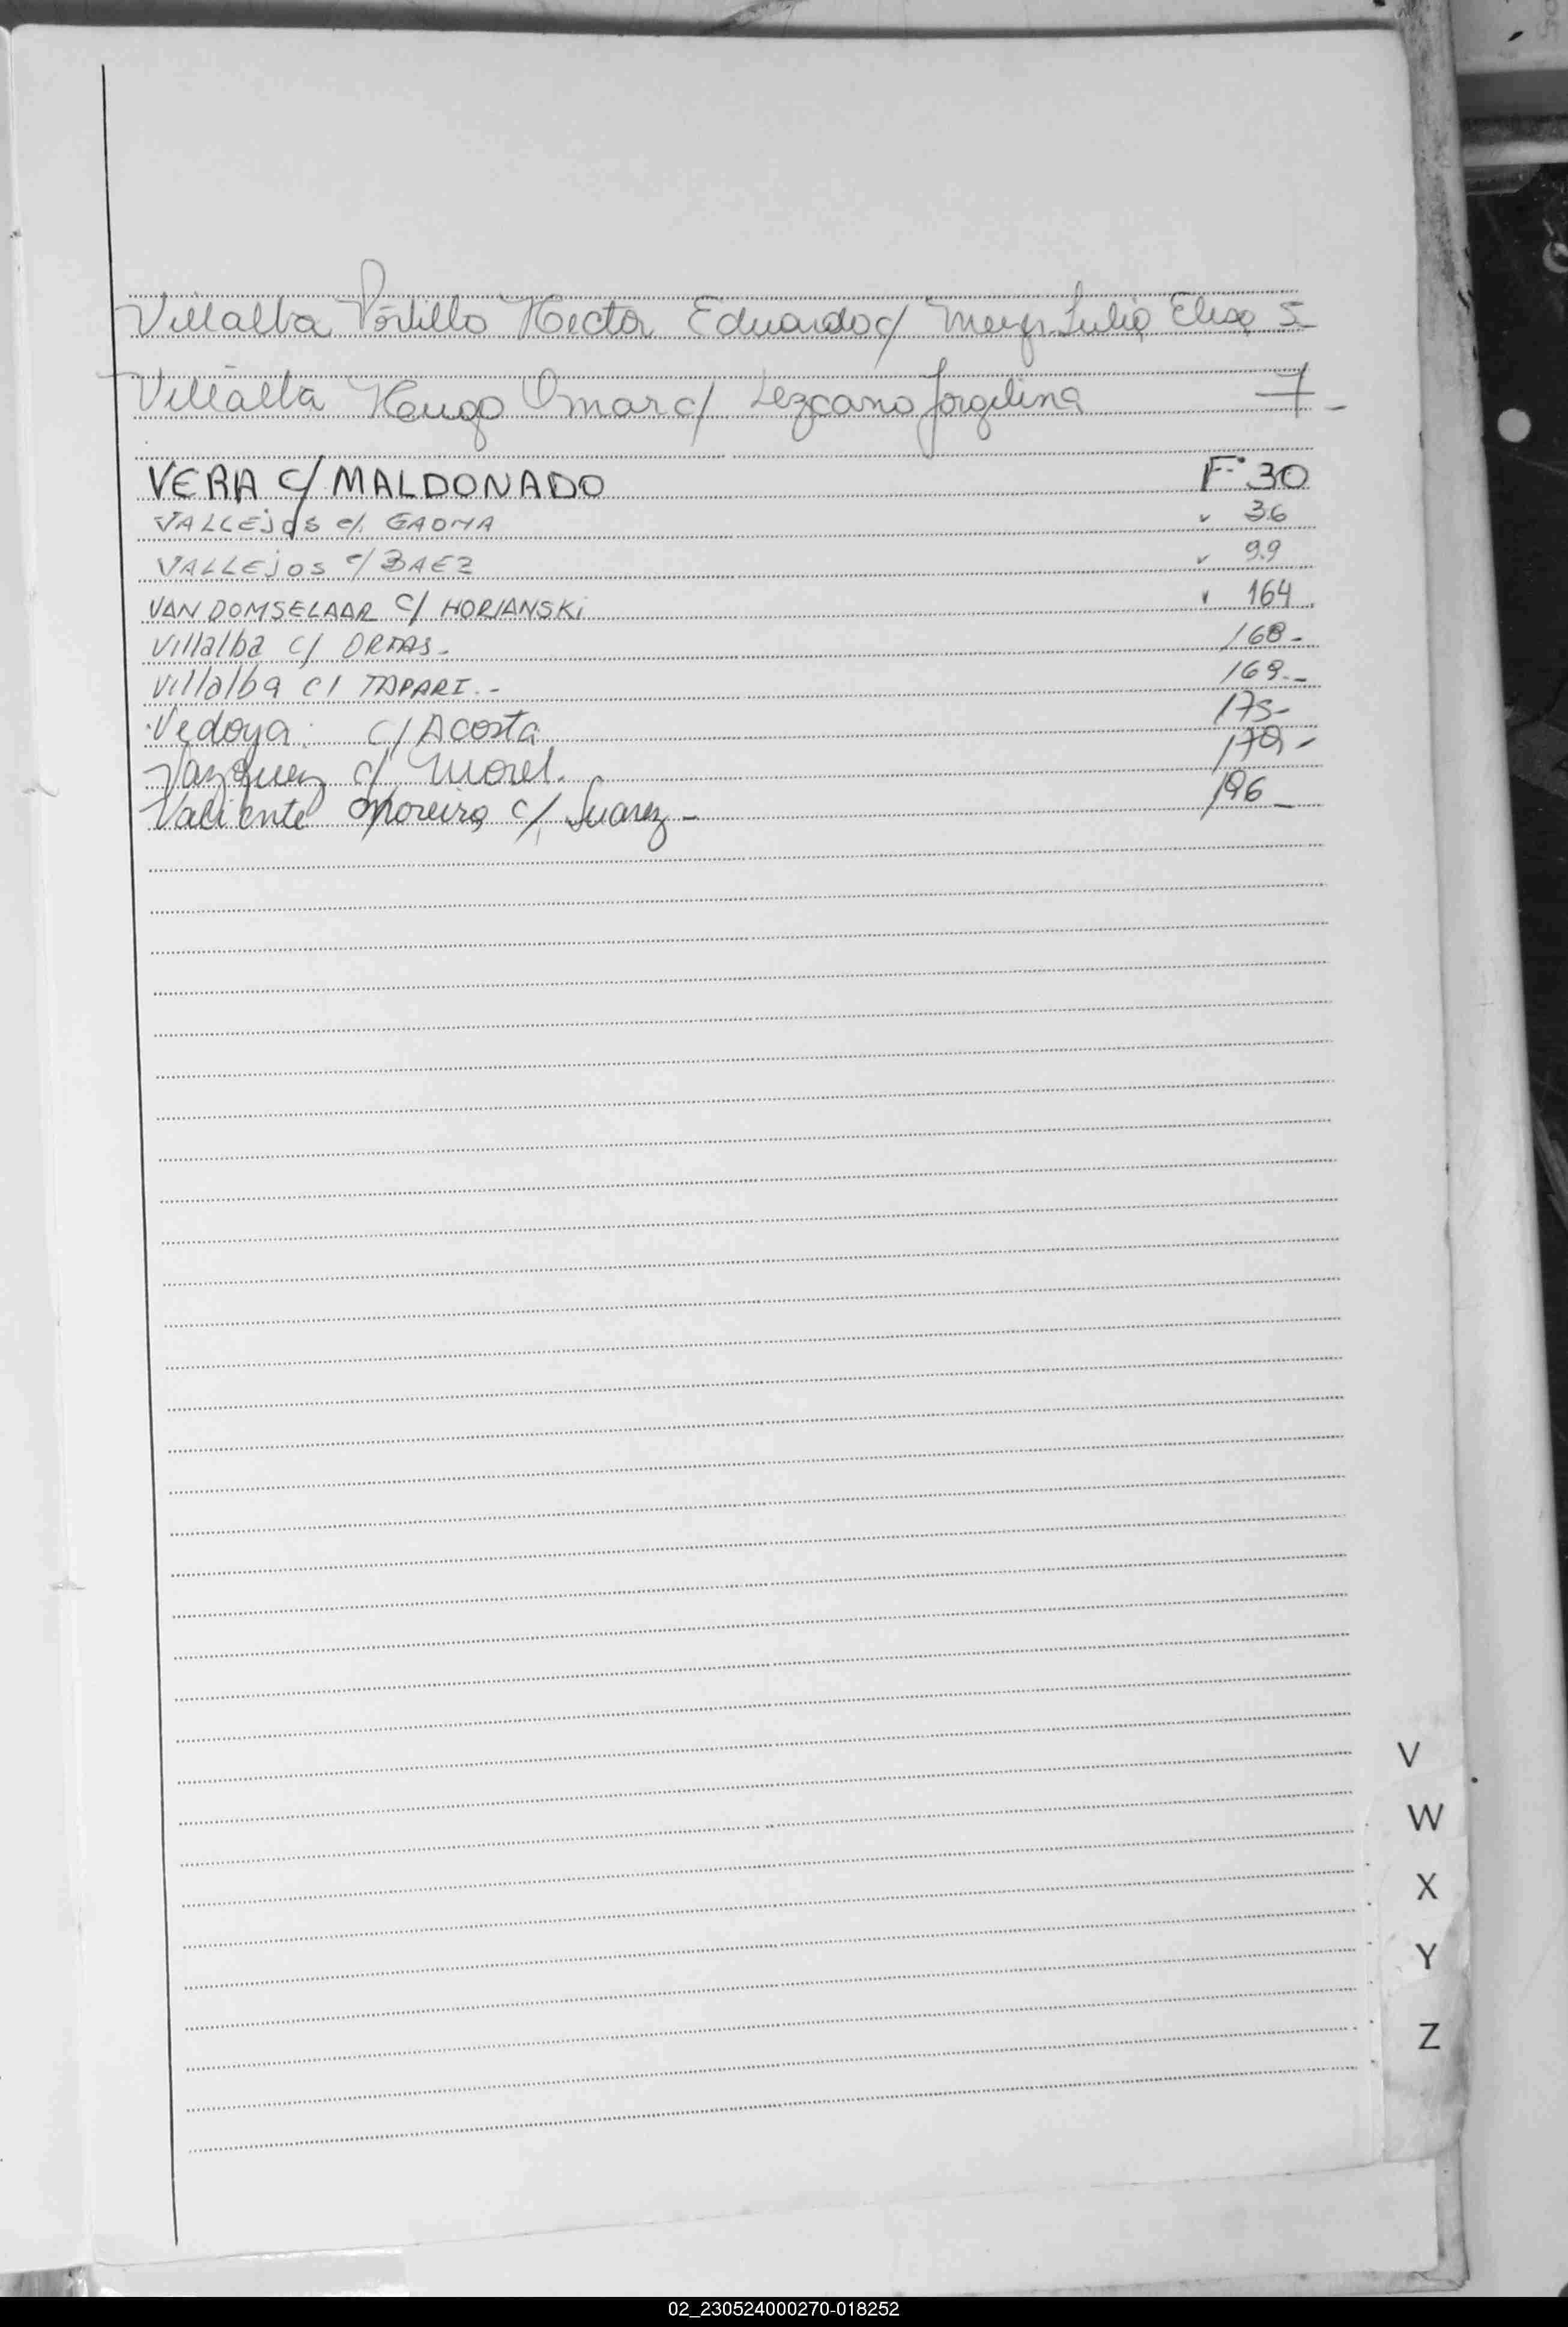 Villalba Portillo Hector Eduardo c/ Julia Elisa 5-
Villalba Hugo Omar c/ Lezcano Jorgelina 7-
VERA c/ MALDONADO Fº 30
VALLEJOS c/. GAONA " 36
VALLEJOS c/ BAEZ " 99
VAN DOMSELAAR C/ HORIANSKI " 164
Villalba c/ ORTAS.- 168-
Villalba c/ TAPARI.- 169.-
Vedoya c/ Acosta 175-
Vazquez c/ Morel. 179-
Valiente Moreira c/ Suarez- 196-
V
W
X
Y
Z
02_230524000270-018252